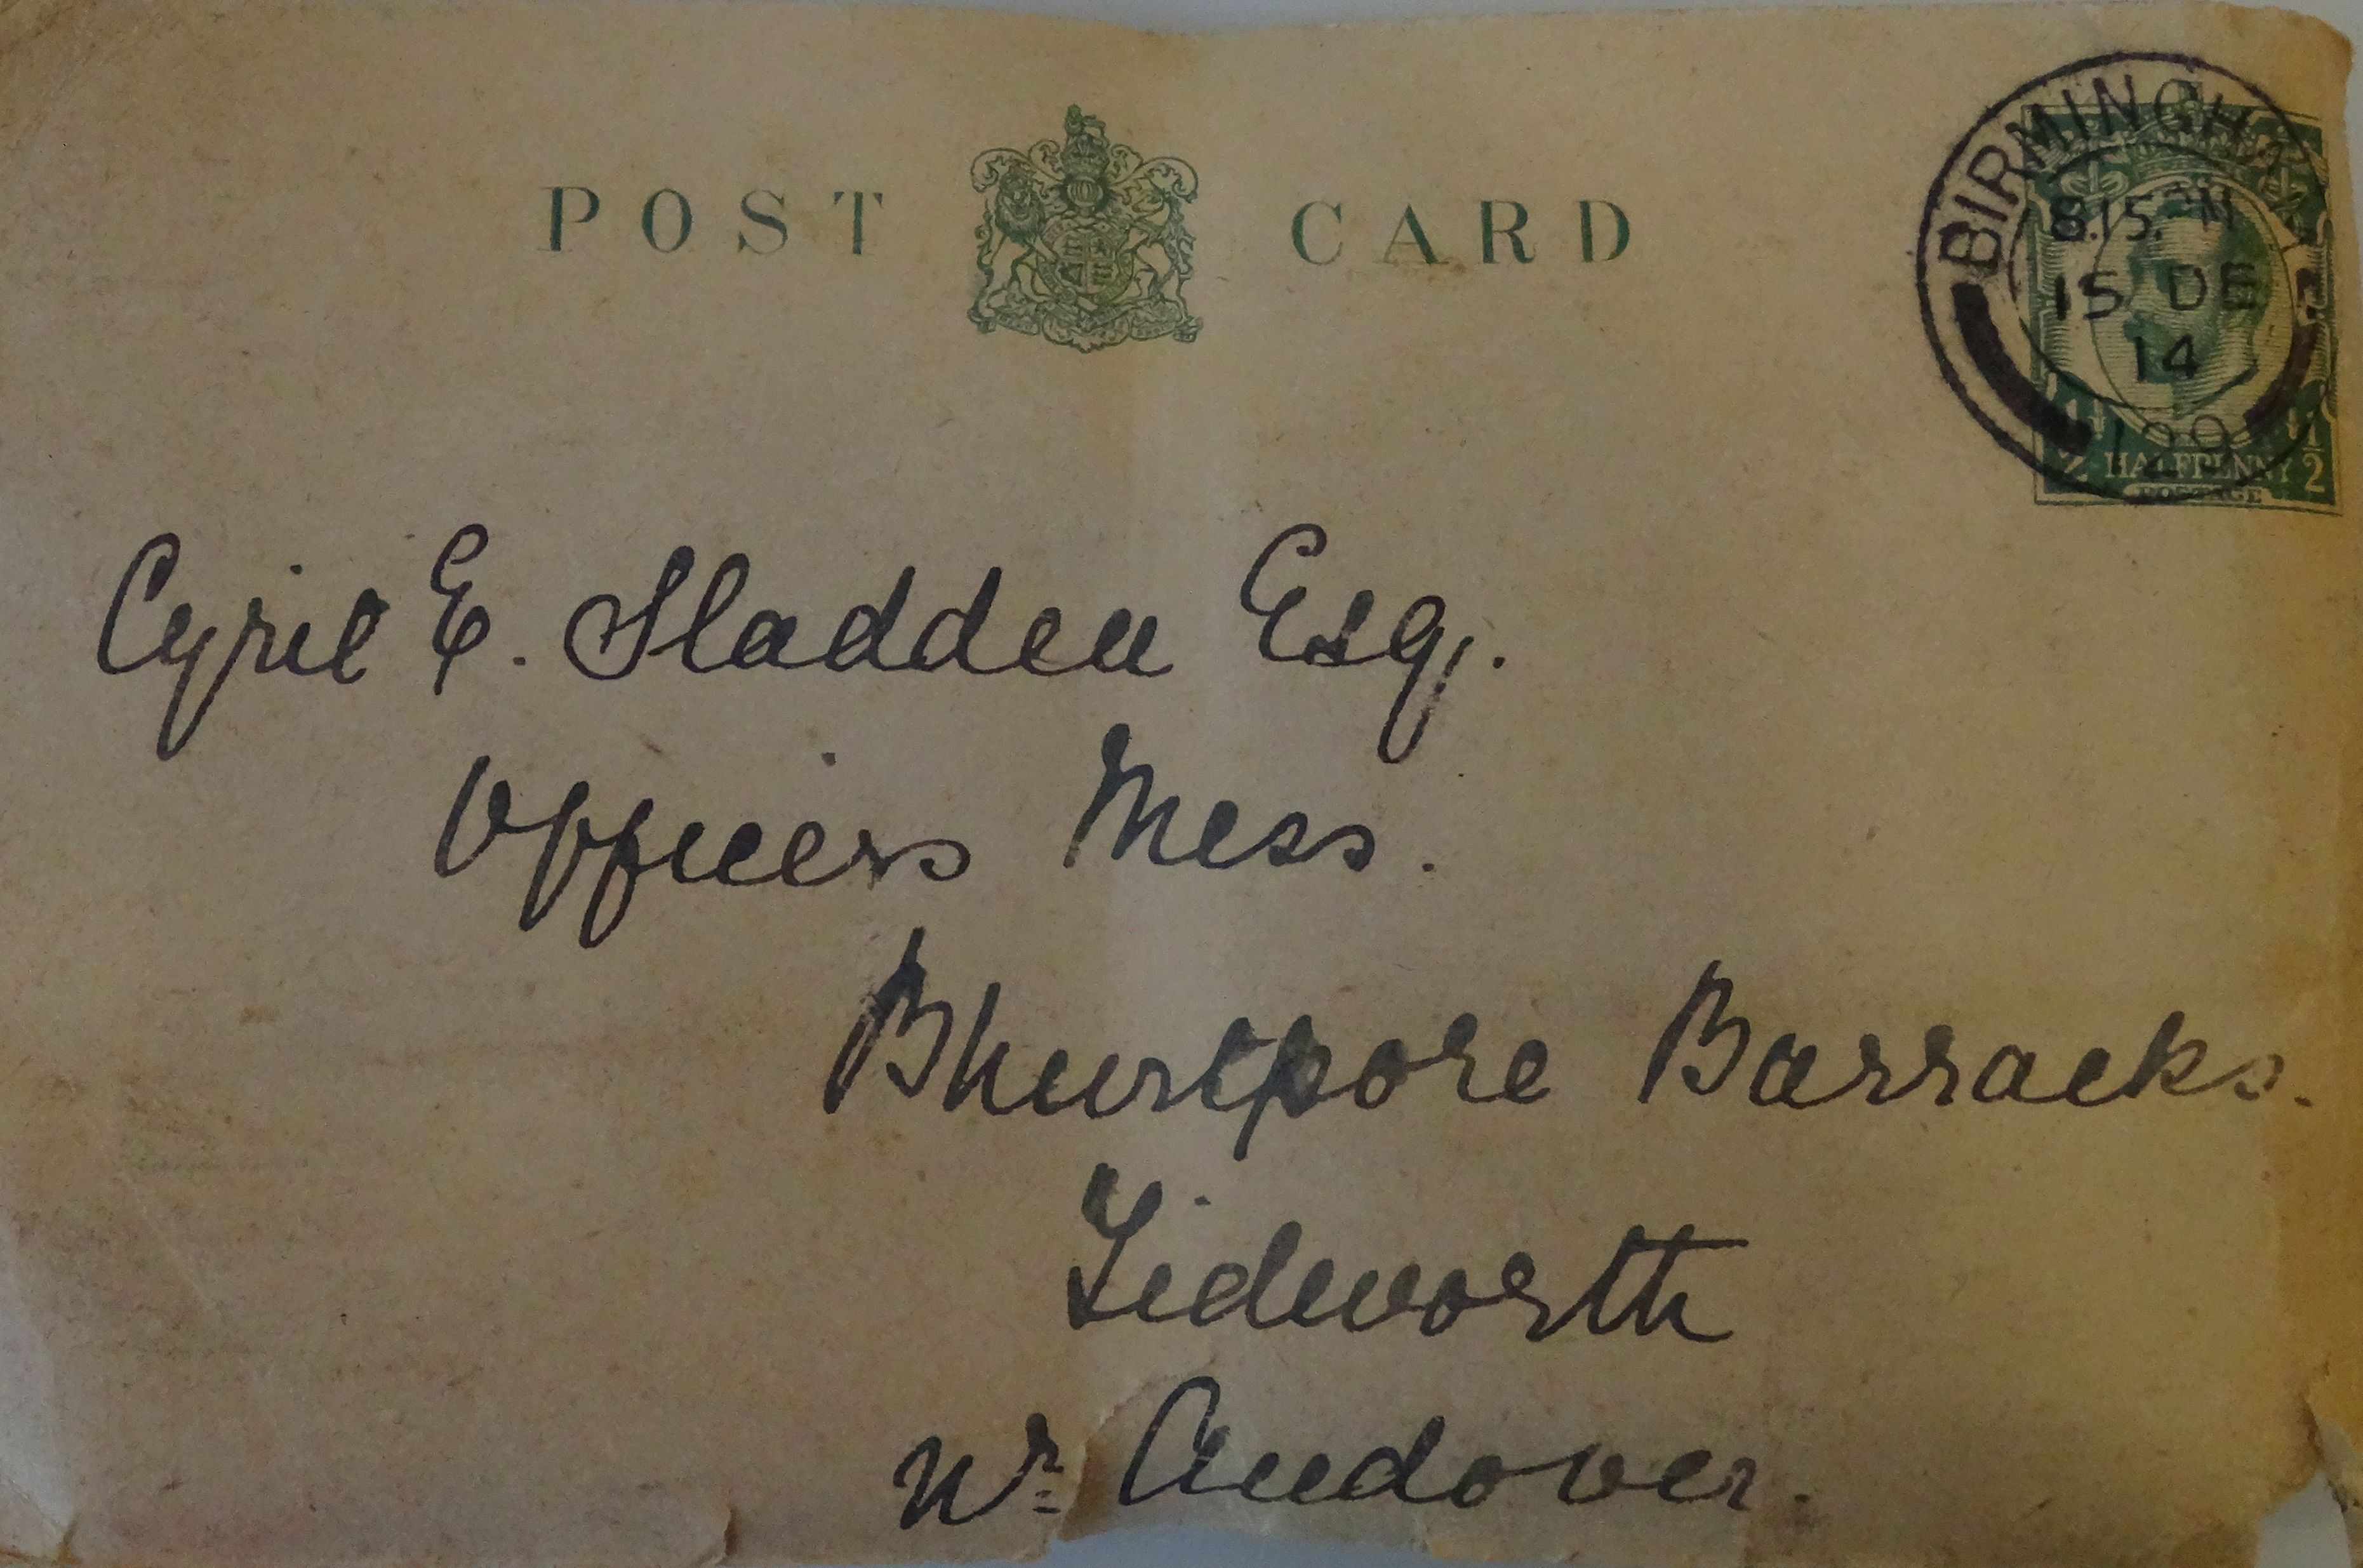 POST CARD
BIRMINGHAM
8.15 PM
15 DE
14
129
HALFPENNY
POSTAGE
Cyril E. Sladden Esq.
Officers Mess.
Bhurtpore Barracks.
Tidworth
Nr. Andover.